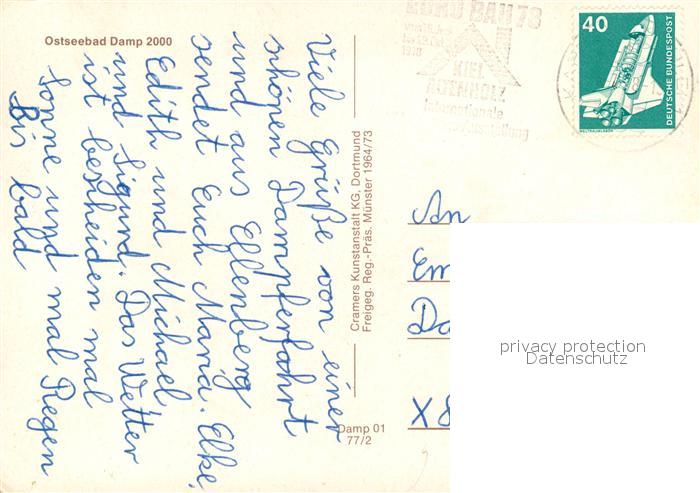 Ostseebad Damp 2000
Viele Grüße von einer
schönen Dampferfahrt
und aus Ellenberg
sendet Euch Maria. Elke,
Edith und Michael
und Sigurd. Das Wetter
ist bescheiden mal
Sonne und mal Regen
Bis bald
Cramers Kunstanstalt KG, Dortmund
Freigeg. Reg.-Präs. Münster 1964/73
Damp 01
77/2
EURO BAU 78
1978
KIEL
Internationale
40
DEUTSCHE BUNDESPOST
WELTRAUMLABOR
An
Em
Da
X 8
privacy protection
Datenschutz